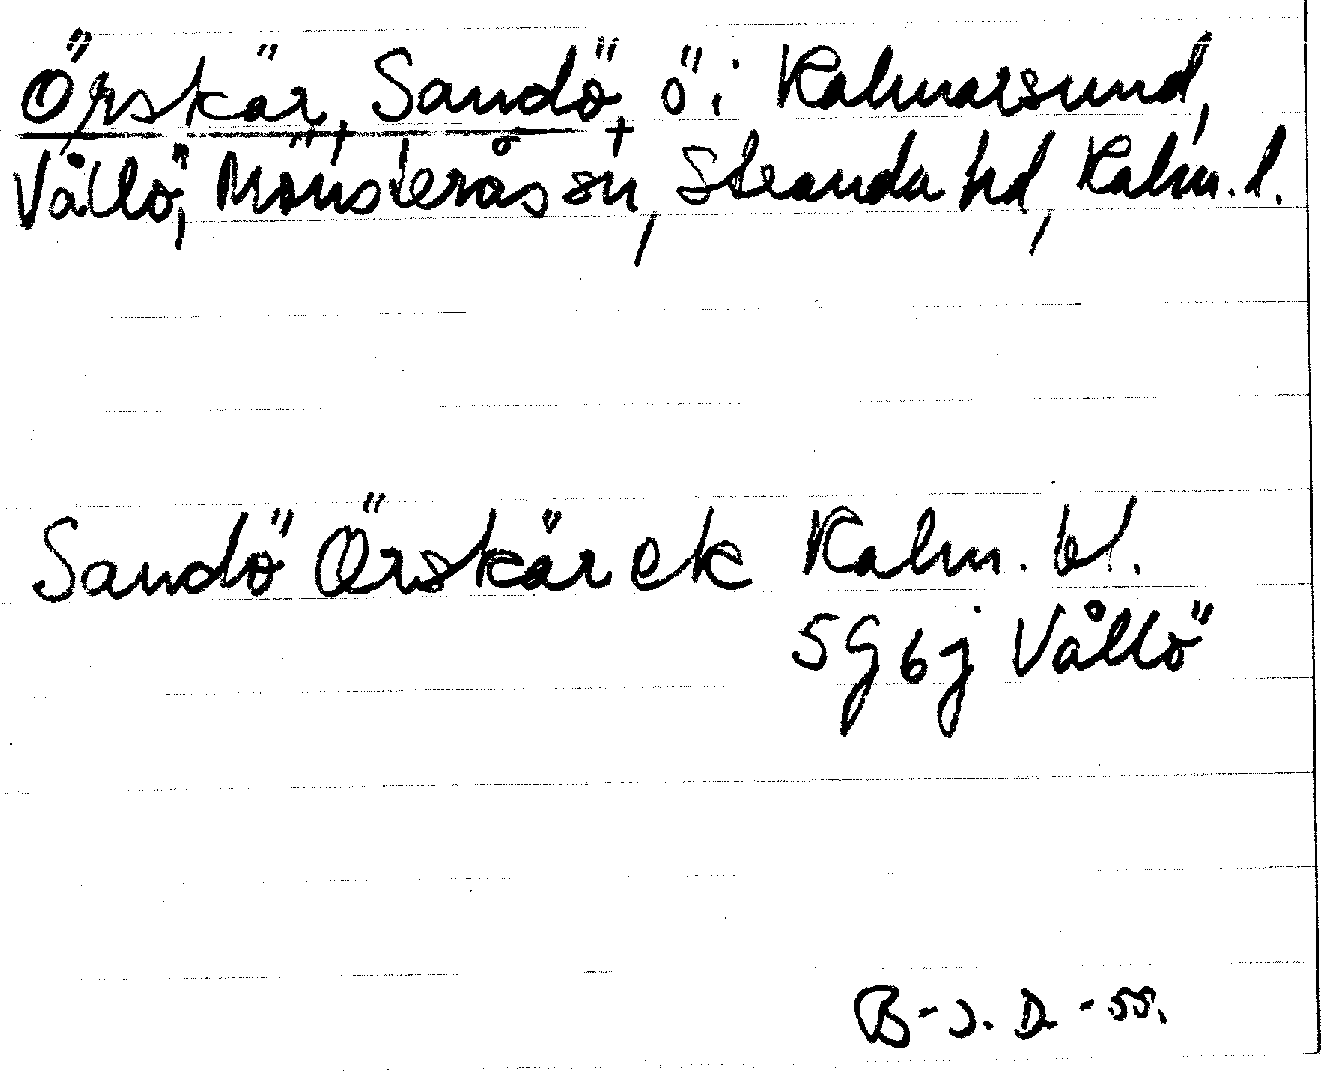 Örskär, Sandö, ö i Kalmarsund,
Vållö, Mönsterås sn, Stranda hd, Kalm. l.
Sandö Örskär ek Kalm. bl.
5G6j Vållö
B-J. D. -55.